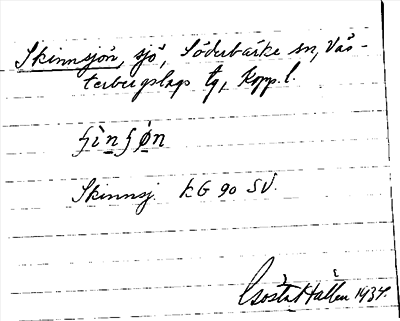 Skinnsjön, sjö, Söderbärke sn, Väs-
terbergslags tg, Kopp. l.
ʃìnʃön
Skinnsj. KG 90 SV.
Gösta Hallén 1934.